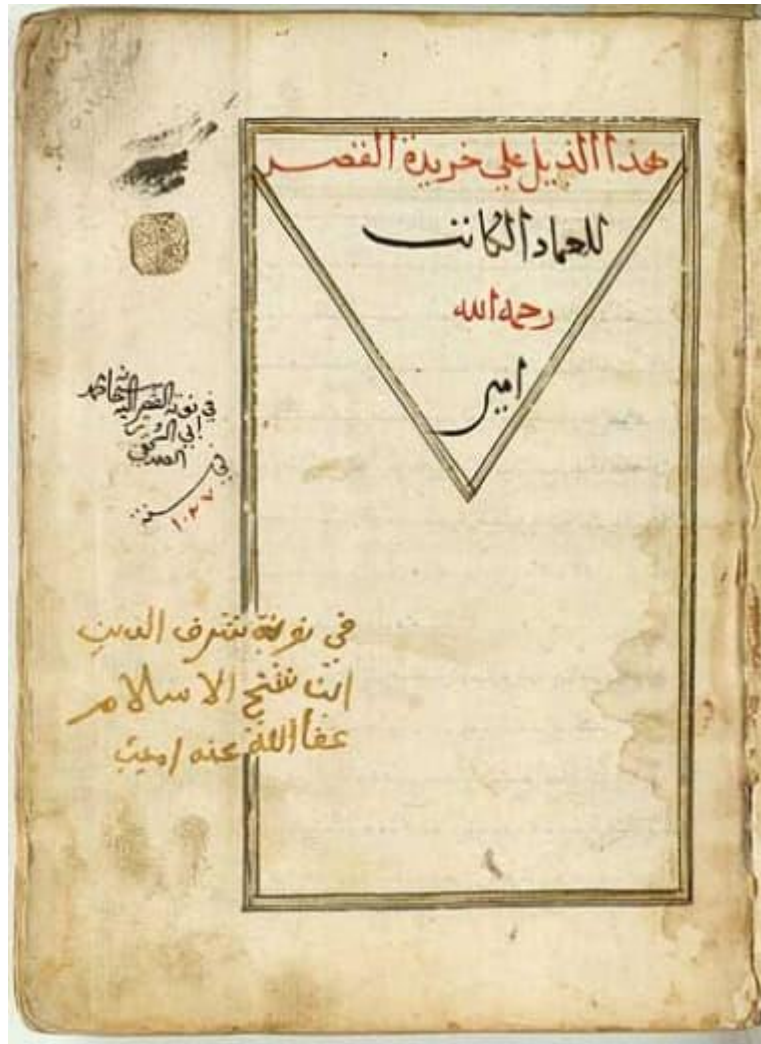 هذا الذيل علي خريدة القصر
للعماد الكاتب
رحمه الله
امين
في نوبة الفقير اليه سبحانه
ابي السرور
الصديقي
في
سنة
١٠٢٧
في نوبة شرف الدين
ابن شيخ الاسلام
عفا الله عنه امين